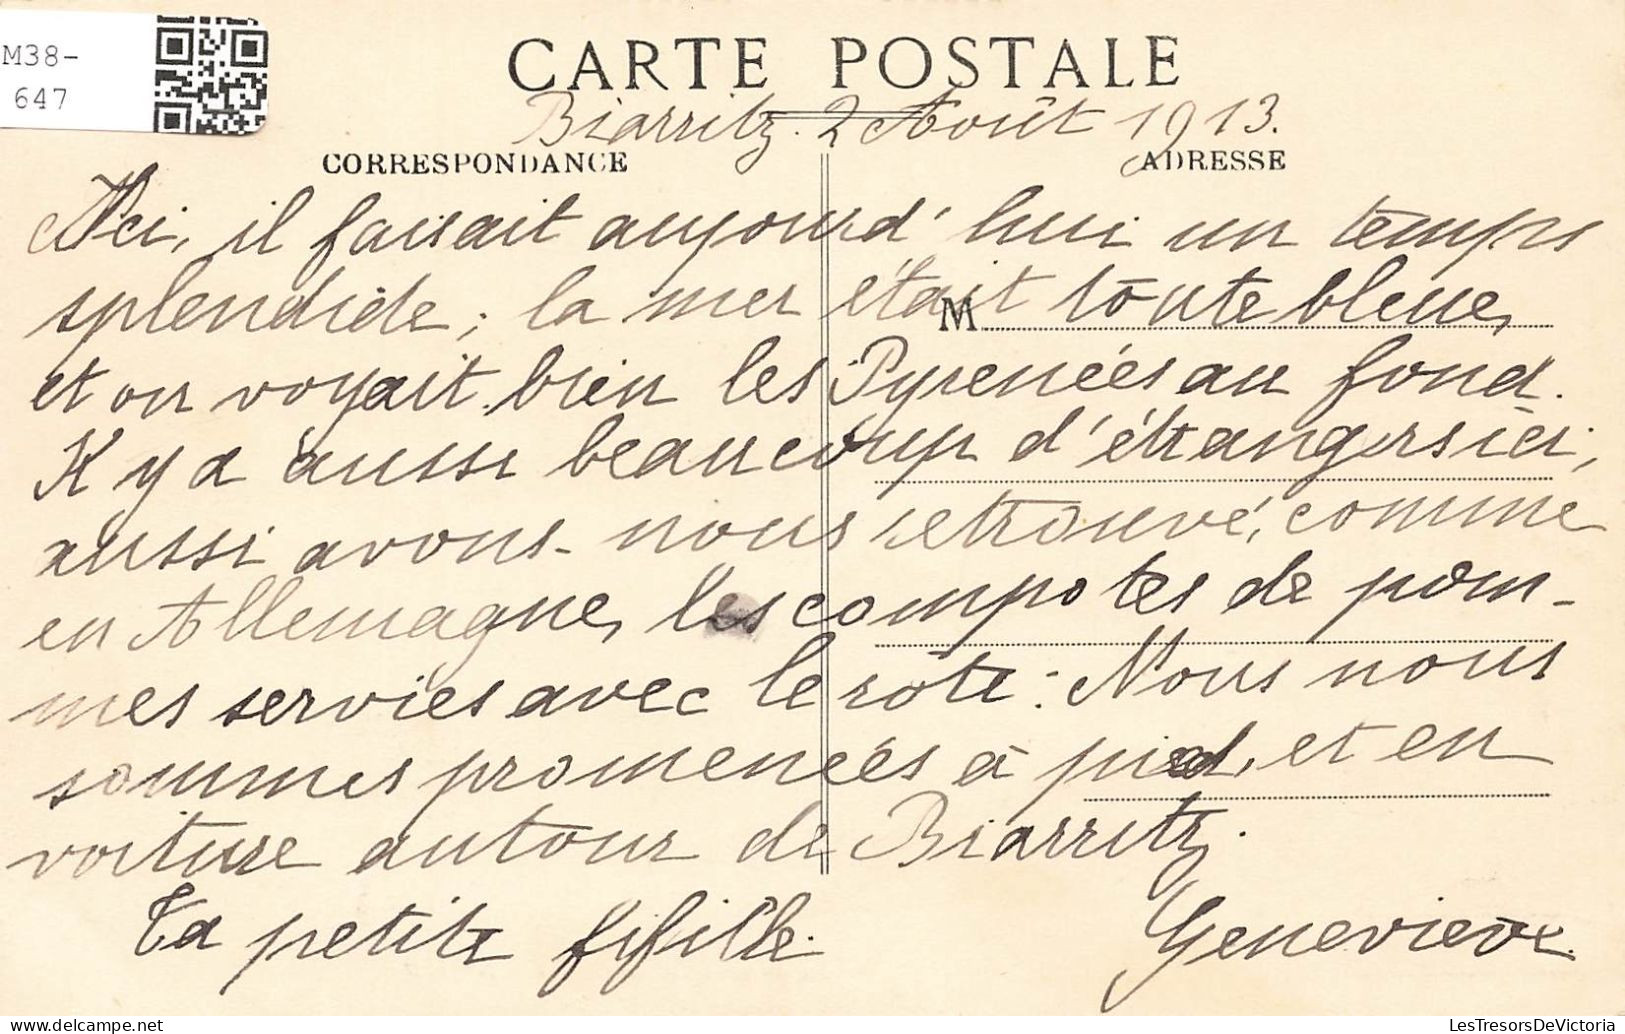 M38-
647
CARTE POSTALE
Biarritz. 2 Août 1913.
CORRESPONDANCE
ADRESSE
Ici, il faisait aujourd'hui un temps
splendide; la mer était toute bleue,
M
et on voyait bien les Pyrenées au fond.
Il y a aussi beaucoup d'étrangers ici,
aussi avons-nous retrouvé, comme
en Allemagne, les compotes de pom-
mes servies avec le rôti. Nous nous
sommes promenées à pied, et en
voiture autour de Biarritz.
Ta petite fifille. Genevieve.
LesTresorsDeVictoria